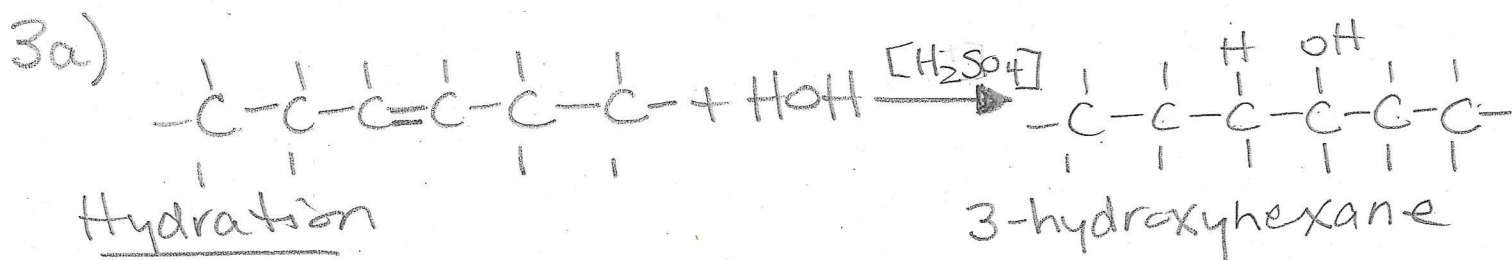 3a)
-C-C-C=C-C-C- + HOH [H₂SO₄] -C-C-C-C-C-C-
H OH
Hydration
3-hydroxyhexane